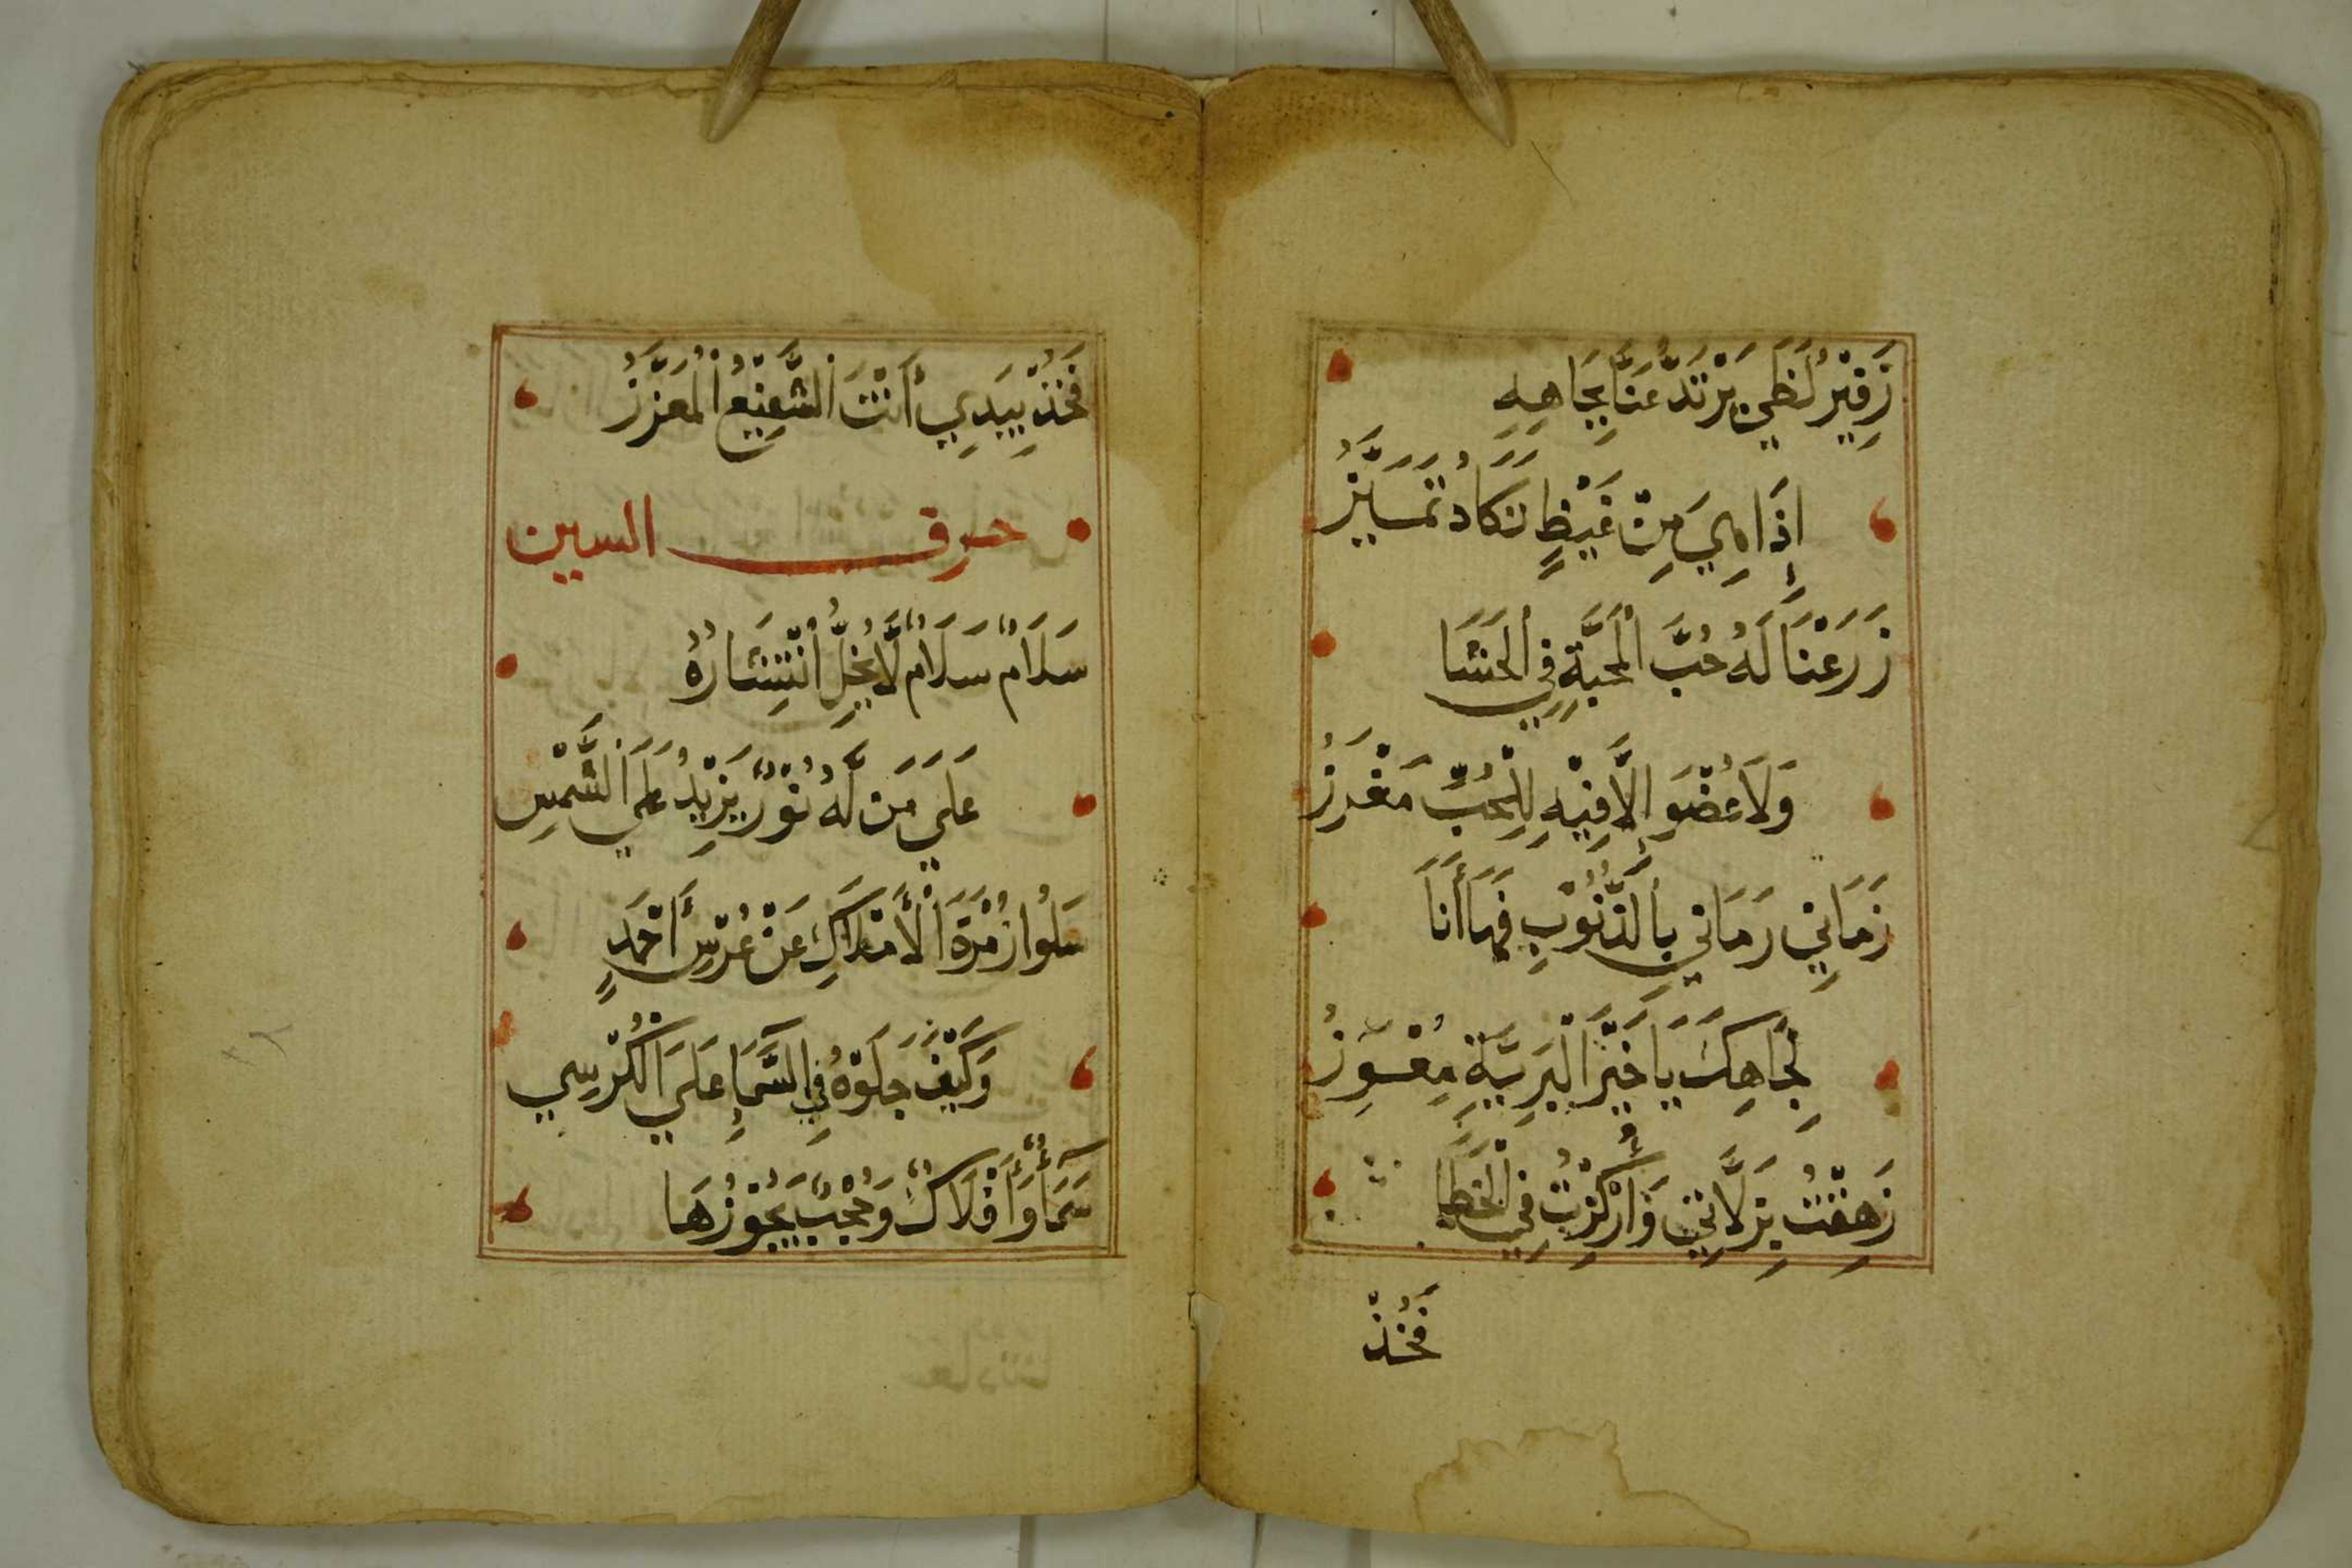 زَفِيْرُ لَظَي يَرْتَدُّ عَنَّا بِجَاهِهِ
إِذَا هِيَ مِنْ غَيْظٍ تَكَادُ تَمَيَّزُ
زَرَعْنَا لَهُ حُبَّ الْمَحَبَّةِ فِي الْحَشَا
وَلَا عُضْوَ إِلَّا فِيْهِ لِلْحُبِّ مَغْرَزُ
زَمَانِي رَمَانِي بِالذُّنُوْبِ فَهَا أَنَا
لِجَاهِكَ يَا خَيْرَ الْبَرِيَّةِ مُعْوِزُ
زَهِقْتُ بِزَلَّاتِي وَأُرْكِزْتُ فِي الْخَطَا
فَخُذْ
فَخُذْ بِيَدِي أَنْتَ الشَّفِيْعُ الْمُعَزَّزُ
حرف السين
سَلَامٌ سَلَامٌ لَّا يُخِلُّ انْتِشَارُهُ
عَلَي مَنْ لَّهُ نُوْرٌ يَّزِيْدُ عَلَي الشَّمْسِ
سَلُوا زُمْرَةَ الْأَمْلَاكِ عَنْ عُرْسِ أَحْمَدٍ
وَكَيْفَ جَلَوْهُ فِي السَّمَاءِ عَلَي الْكُرْسِي
سَمَآءٌ وَأَفْلَاكٌ وَحُجْبٌ يَجُوْزُهَا